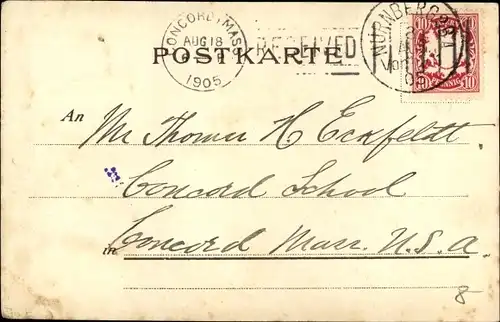 CONCORD, MASS.
AUG 18
1905
RECEIVED
NÜRNBERG
10 10
PFENNIG
10 10
POSTKARTE
An Mr Thomas H Eckfeldt
Concord School
in Concord Mass. U.S.A.
8-